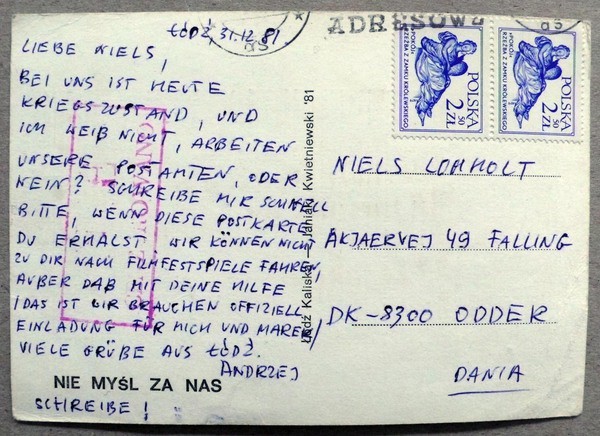 ŁÓDŹ, 31.12.81
LIEBE NIELS,
BEI UNS IST HEUTE
KRIEGSZUSTAND, UND
ICH WEIß NICHT, ARBEITEN
UNSERE POSTAMTEN, ODER
NEIN? SCHREIBE MIR SCHNELL
BITTE, WENN DIESE POSTKARTE
DU ERHALST WIR KÖNNEN NICHT
ZU DIR NACH FILMFESTSPIELE FAHREN,
AUßER DAß MIT DEINE HILFE
/DAS IST WIR BRAUCHEN OFFIZIELL
EINLADUNG FÜR MICH UND MAREK/
VIELE GRÜßE AUS ŁÓDŹ.
ANDRZEJ
NIE MYŚL ZA NAS
SCHREIBE!
Łódź Kaliska – Janiak, Kwietniewski '81
ADRESOWE
POKÓJ
RZEŹBA Z ZAMKU KRÓLEWSKIEGO
POLSKA
2 50 ZŁ
POKÓJ
RZEŹBA Z ZAMKU KRÓLEWSKIEGO
POLSKA
2 50 ZŁ
NIELS LOMHOLT
AKJAERVEJ 49 FALLING
DK-8300 ODDER
DANIA